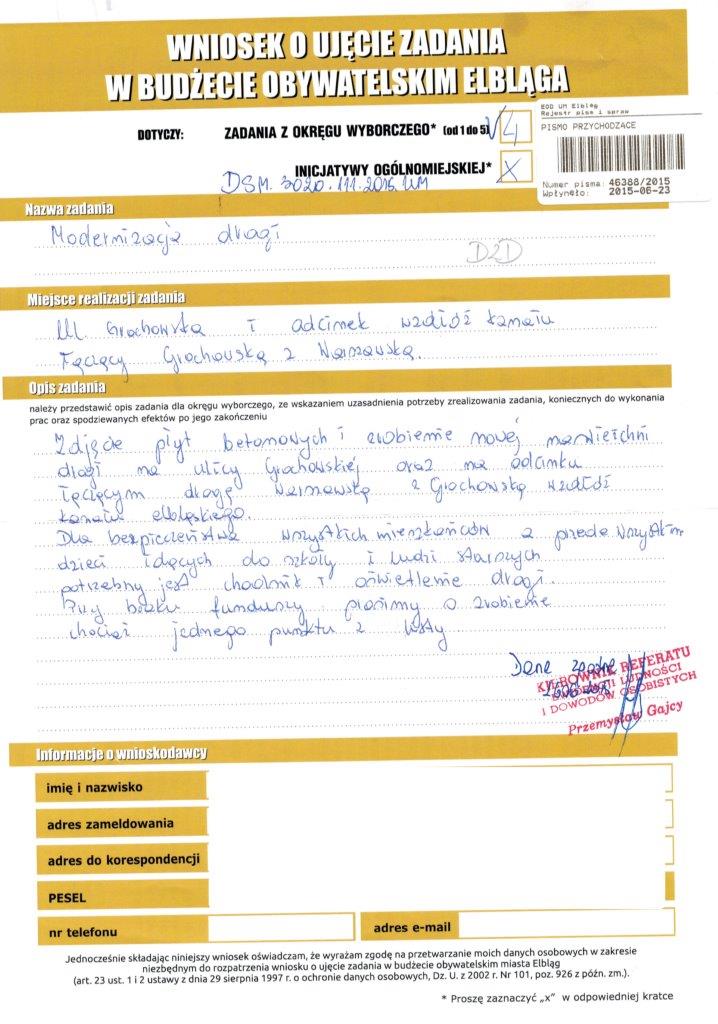 WNIOSEK O UJĘCIE ZADANIA
W BUDŻECIE OBYWATELSKIM ELBLĄGA
DOTYCZY: ZADANIA Z OKRĘGU WYBORCZEGO* (od 1 do 5) V 4
INICJATYWY OGÓLNOMIEJSKIEJ* X
EOD UM Elbląg
Rejestr pism i spraw
PISMO PRZYCHODZĄCE
Numer pisma: 46388/2015
Wpłynęło: 2015-06-23
DSM. 3020.111.2015.UM
Nazwa zadania
Modernizacja drogi
DZD
Miejsce realizacji zadania
Ul. Grochowska i odcinek wzdłóż kanału
Łączący Grochowską z Warszawską.
Opis zadania
należy przedstawić opis zadania dla okręgu wyborczego, ze wskazaniem uzasadnienia potrzeby zrealizowania zadania, koniecznych do wykonania
prac oraz spodziewanych efektów po jego zakończeniu
Zdjęcie płyt betonowych i zrobienie nowej nawierzchni
drogi na ulicy Grochowskiej oraz na odcinku
łączącym drogę Warszawską z Grochowską wzdłóż
kanału elbląskiego.
Dla bezpieczeństwa wszystkich mieszkańców a przede wszystkim
dzieci idących do szkoły i ludzi starszych
potrzebny jest chodnik i oświetlenie drogi.
Przy braku funduszy prosimy o zrobienie
chociaż jednego punktu z listy
Dane zgodne
KIEROWNIK REFERATU
EWIDENCJI LUDNOŚCI
I DOWODÓW OSOBISTYCH
Przemysław Gajcy
Informacje o wnioskodawcy
imię i nazwisko
adres zameldowania
adres do korespondencji
PESEL
nr telefonu adres e-mail
Jednocześnie składając niniejszy wniosek oświadczam, że wyrażam zgodę na przetwarzanie moich danych osobowych w zakresie
niezbędnym do rozpatrzenia wniosku o ujęcie zadania w budżecie obywatelskim miasta Elbląg
(art. 23 ust. 1 i 2 ustawy z dnia 29 sierpnia 1997 r. o ochronie danych osobowych, Dz. U. z 2002 r. Nr 101, poz. 926 z późn. zm.).
* Proszę zaznaczyć „x" w odpowiedniej kratce